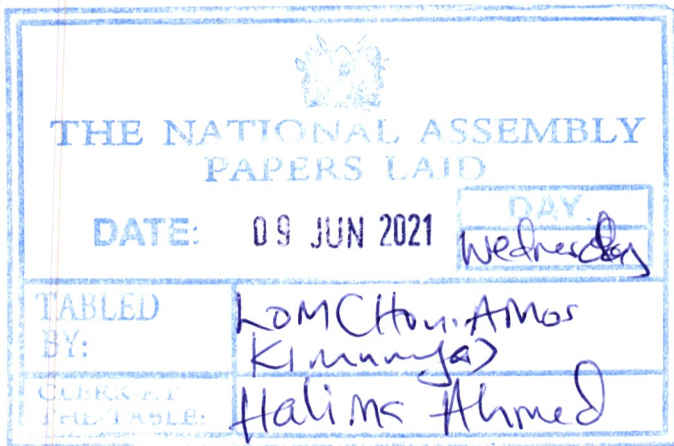 THE NATIONAL ASSEMBLY
PAPERS LAID
DATE: 09 JUN 2021
DAY.
Wednesday
TABLED
BY:
LOM (Hon. Amos
Kimunya)
CLERK AT
THE-TABLE:
Halima Ahmed